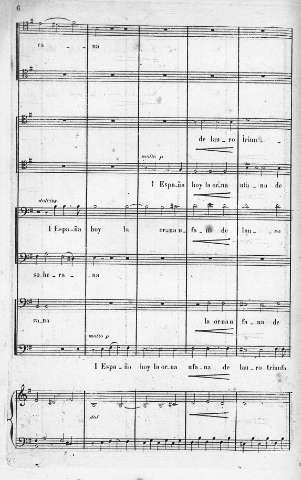 6
ra - na
de lau - ro triunfa -
molto p
I España hoy la orna ufana de
dolcis
I España hoy la orna u - fa - na de lau - ro
so - be - ra - na
ra - na la orna u - fa - na de
molto p
I Espa - ña hoy la or.na ufana de lau - ro triunfa
dol